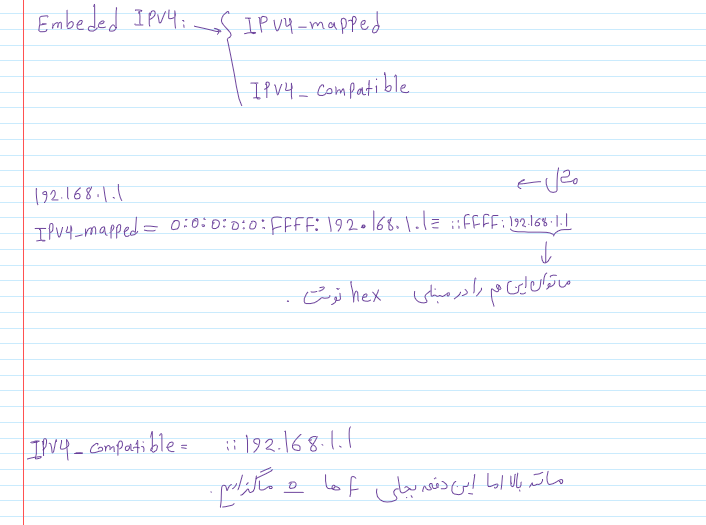 Embeded IPV4: → { IPV4-mapped
IPV4-compatible
مثال ←
192.168.1.1
IPV4-mapped = 0:0:0:0:0:FFFF:192.168.1.1 ≡ ::FFFF:192.168.1.1
↓
میتوان این هم را در مبنای hex نوشت .
IPV4-compatible = ::192.168.1.1
مانند بالا اما این دفعه بجای F ها 0 میگذاریم .